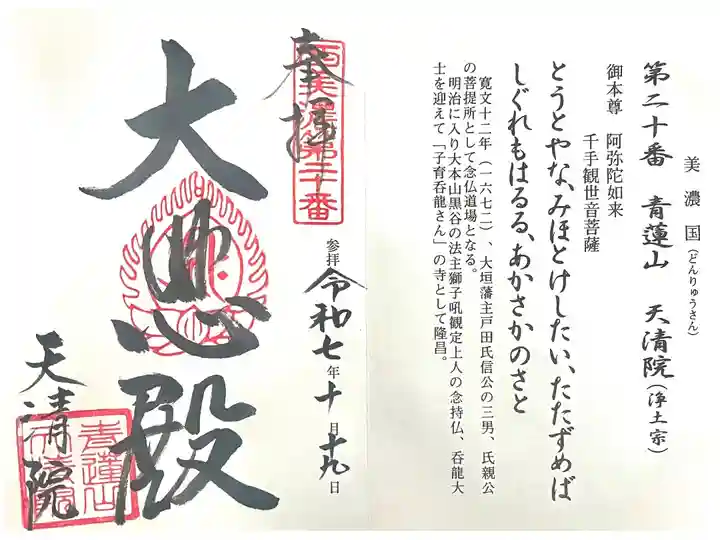 美濃国(どんりゅうさん)
第二十番　青蓮山　天清院(浄土宗)
御本尊　阿弥陀如来
千手観世音菩薩
とうとやな、みほとけしたい、たたずめば
しぐれもはるる、あかさかのさと
寛文十二年(一六七二)、大垣藩主戸田氏信公の三男、氏親公
の菩提所として念仏道場となる。
明治に入り大本山黒谷の法主獅子吼観定上人の念持仏、呑龍大
士を迎えて「子育呑龍さん」の寺として隆昌。
奉拝
西美濃第二十番
参拝 令和七年十月十九日
大悲殿
天清院
青蓮山